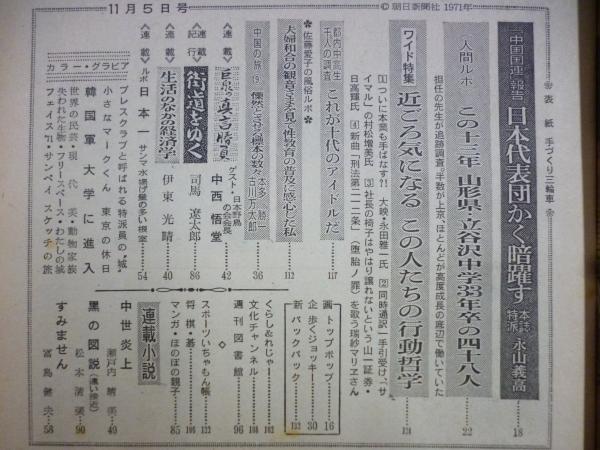 11月5日号
©朝日新聞社 1971年
表紙 手づくり三輪車
中国国連報告 日本代表団かく暗躍す 本誌特派 永山義高 18
人間ルポ この十三年 山形県・立谷沢中学33年卒の四十八人 22
担任の先生が追跡調査、半数が上京、ほとんどが高度成長の底辺で働いていた
ワイド特集 近ごろ気になる この人たちの行動哲学 124
[1]ついに本業も手ばなす?! 大映・永田雅一氏 [2]同時通訳一手引受け、“サ
イマル”の村松増美氏 [3]社長の椅子はやはり譲れないという山一証券・
日高輝氏 [4]新曲「刑法第二一二条」(堕胎ノ罪)を歌う瑞紗マリヱさん
都内中高生千人の調査 これが十代のアイドルだ 117
●佐藤愛子の風俗ルポ●
夫婦和合の観音さままで見て性教育の普及に感心した私 112
中国の旅(9) 慄然とさせる標本の数々 本多勝一 古川万太郎 36
〈連載〉巨泉の真言勝負 ゲスト・日本野鳥の会会長 中西悟堂 42
〈連載〉紀行 街道をゆく 司馬遼太郎 86
〈連載〉生活のなかの経済学 伊東光晴 40
〈連載〉ルポ 日本一 サンマ水揚げ量の多い根室 54
カラー・グラビア
プレスクラブと呼ばれる特派員の“城”
小さなマークくん 東京の休日
韓国軍大学に進入
世界の民芸・現代美・動物家族
失われた生物・フリースペース・わたしの城
フェイス'71・サンペイ スケッチの旅
画トップポップ 16
企歩くジョッキー 30
新パックパック 132
くらし&れじゃー 102
文化チャンネル 108
週刊図書館 96
◇
スポーツいちゃもん帳 122
将棋・碁 106
マンガ・ほのぼの親子 85
連載小説
中世炎上 瀬戸内晴美 49
黒の図説(遠い接近) 松本清張 90
すみません 富島健夫 58